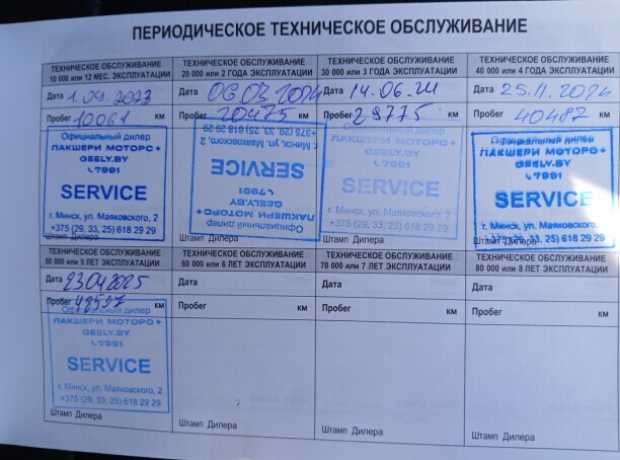 ПЕРИОДИЧЕСКОЕ ТЕХНИЧЕСКОЕ ОБСЛУЖИВАНИЕ
ТЕХНИЧЕСКОЕ ОБСЛУЖИВАНИЕ
10 000 или 12 МЕС. ЭКСПЛУАТАЦИИ
Дата 1.09.2023
Пробег 10061 км
Официальный дилер
ЛАКШЕРИ МОТОРС+
GEELY.BY
7991
SERVICE
г. Минск, ул. Маяковского, 2
+375 (29, 33, 25) 618 29 29
Штамп Дилера
ТЕХНИЧЕСКОЕ ОБСЛУЖИВАНИЕ
20 000 или 2 ГОДА ЭКСПЛУАТАЦИИ
Дата 06.03.2024
Пробег 20475 км
+375 (29, 33, 25) 618 29 29
г. Минск, ул. Маяковского, 2
SERVICE
7991
GEELY.BY
ЛАКШЕРИ МОТОРС+
Официальный дилер
Штамп Дилера
ТЕХНИЧЕСКОЕ ОБСЛУЖИВАНИЕ
30 000 или 3 ГОДА ЭКСПЛУАТАЦИИ
Дата 14.06.24
Пробег 29775 км
ЛАКШЕРИ МОТОРС+
GEELY.BY
7991
SERVICE
г. Минск, ул. Маяковского, 2
+375 (29, 33, 25) 618 29 29
Штамп Дилера
ТЕХНИЧЕСКОЕ ОБСЛУЖИВАНИЕ
40 000 или 4 ГОДА ЭКСПЛУАТАЦИИ
Дата 25.11.2024
Пробег 40487 км
Официальный дилер
ЛАКШЕРИ МОТОРС+
GEELY.BY
7991
SERVICE
г. Минск, ул. Маяковского, 2
+375 (29, 33, 25) 618 29 29
Штамп Дилера
ТЕХНИЧЕСКОЕ ОБСЛУЖИВАНИЕ
50 000 или 5 ЛЕТ ЭКСПЛУАТАЦИИ
Дата 23.04.2025
Пробег 48597 км
Официальный дилер
ЛАКШЕРИ МОТОРС+
GEELY.BY
7991
SERVICE
г. Минск, ул. Маяковского, 2
+375 (29, 33, 25) 618 29 29
Штамп Дилера
ТЕХНИЧЕСКОЕ ОБСЛУЖИВАНИЕ
60 000 или 6 ЛЕТ ЭКСПЛУАТАЦИИ
Дата
Пробег км
Штамп Дилера
ТЕХНИЧЕСКОЕ ОБСЛУЖИВАНИЕ
70 000 или 7 ЛЕТ ЭКСПЛУАТАЦИИ
Дата
Пробег км
Штамп Дилера
ТЕХНИЧЕСКОЕ ОБСЛУЖИВАНИЕ
80 000 или 8 ЛЕТ ЭКСПЛУАТАЦИИ
Дата
Пробег км
Штамп Дилера